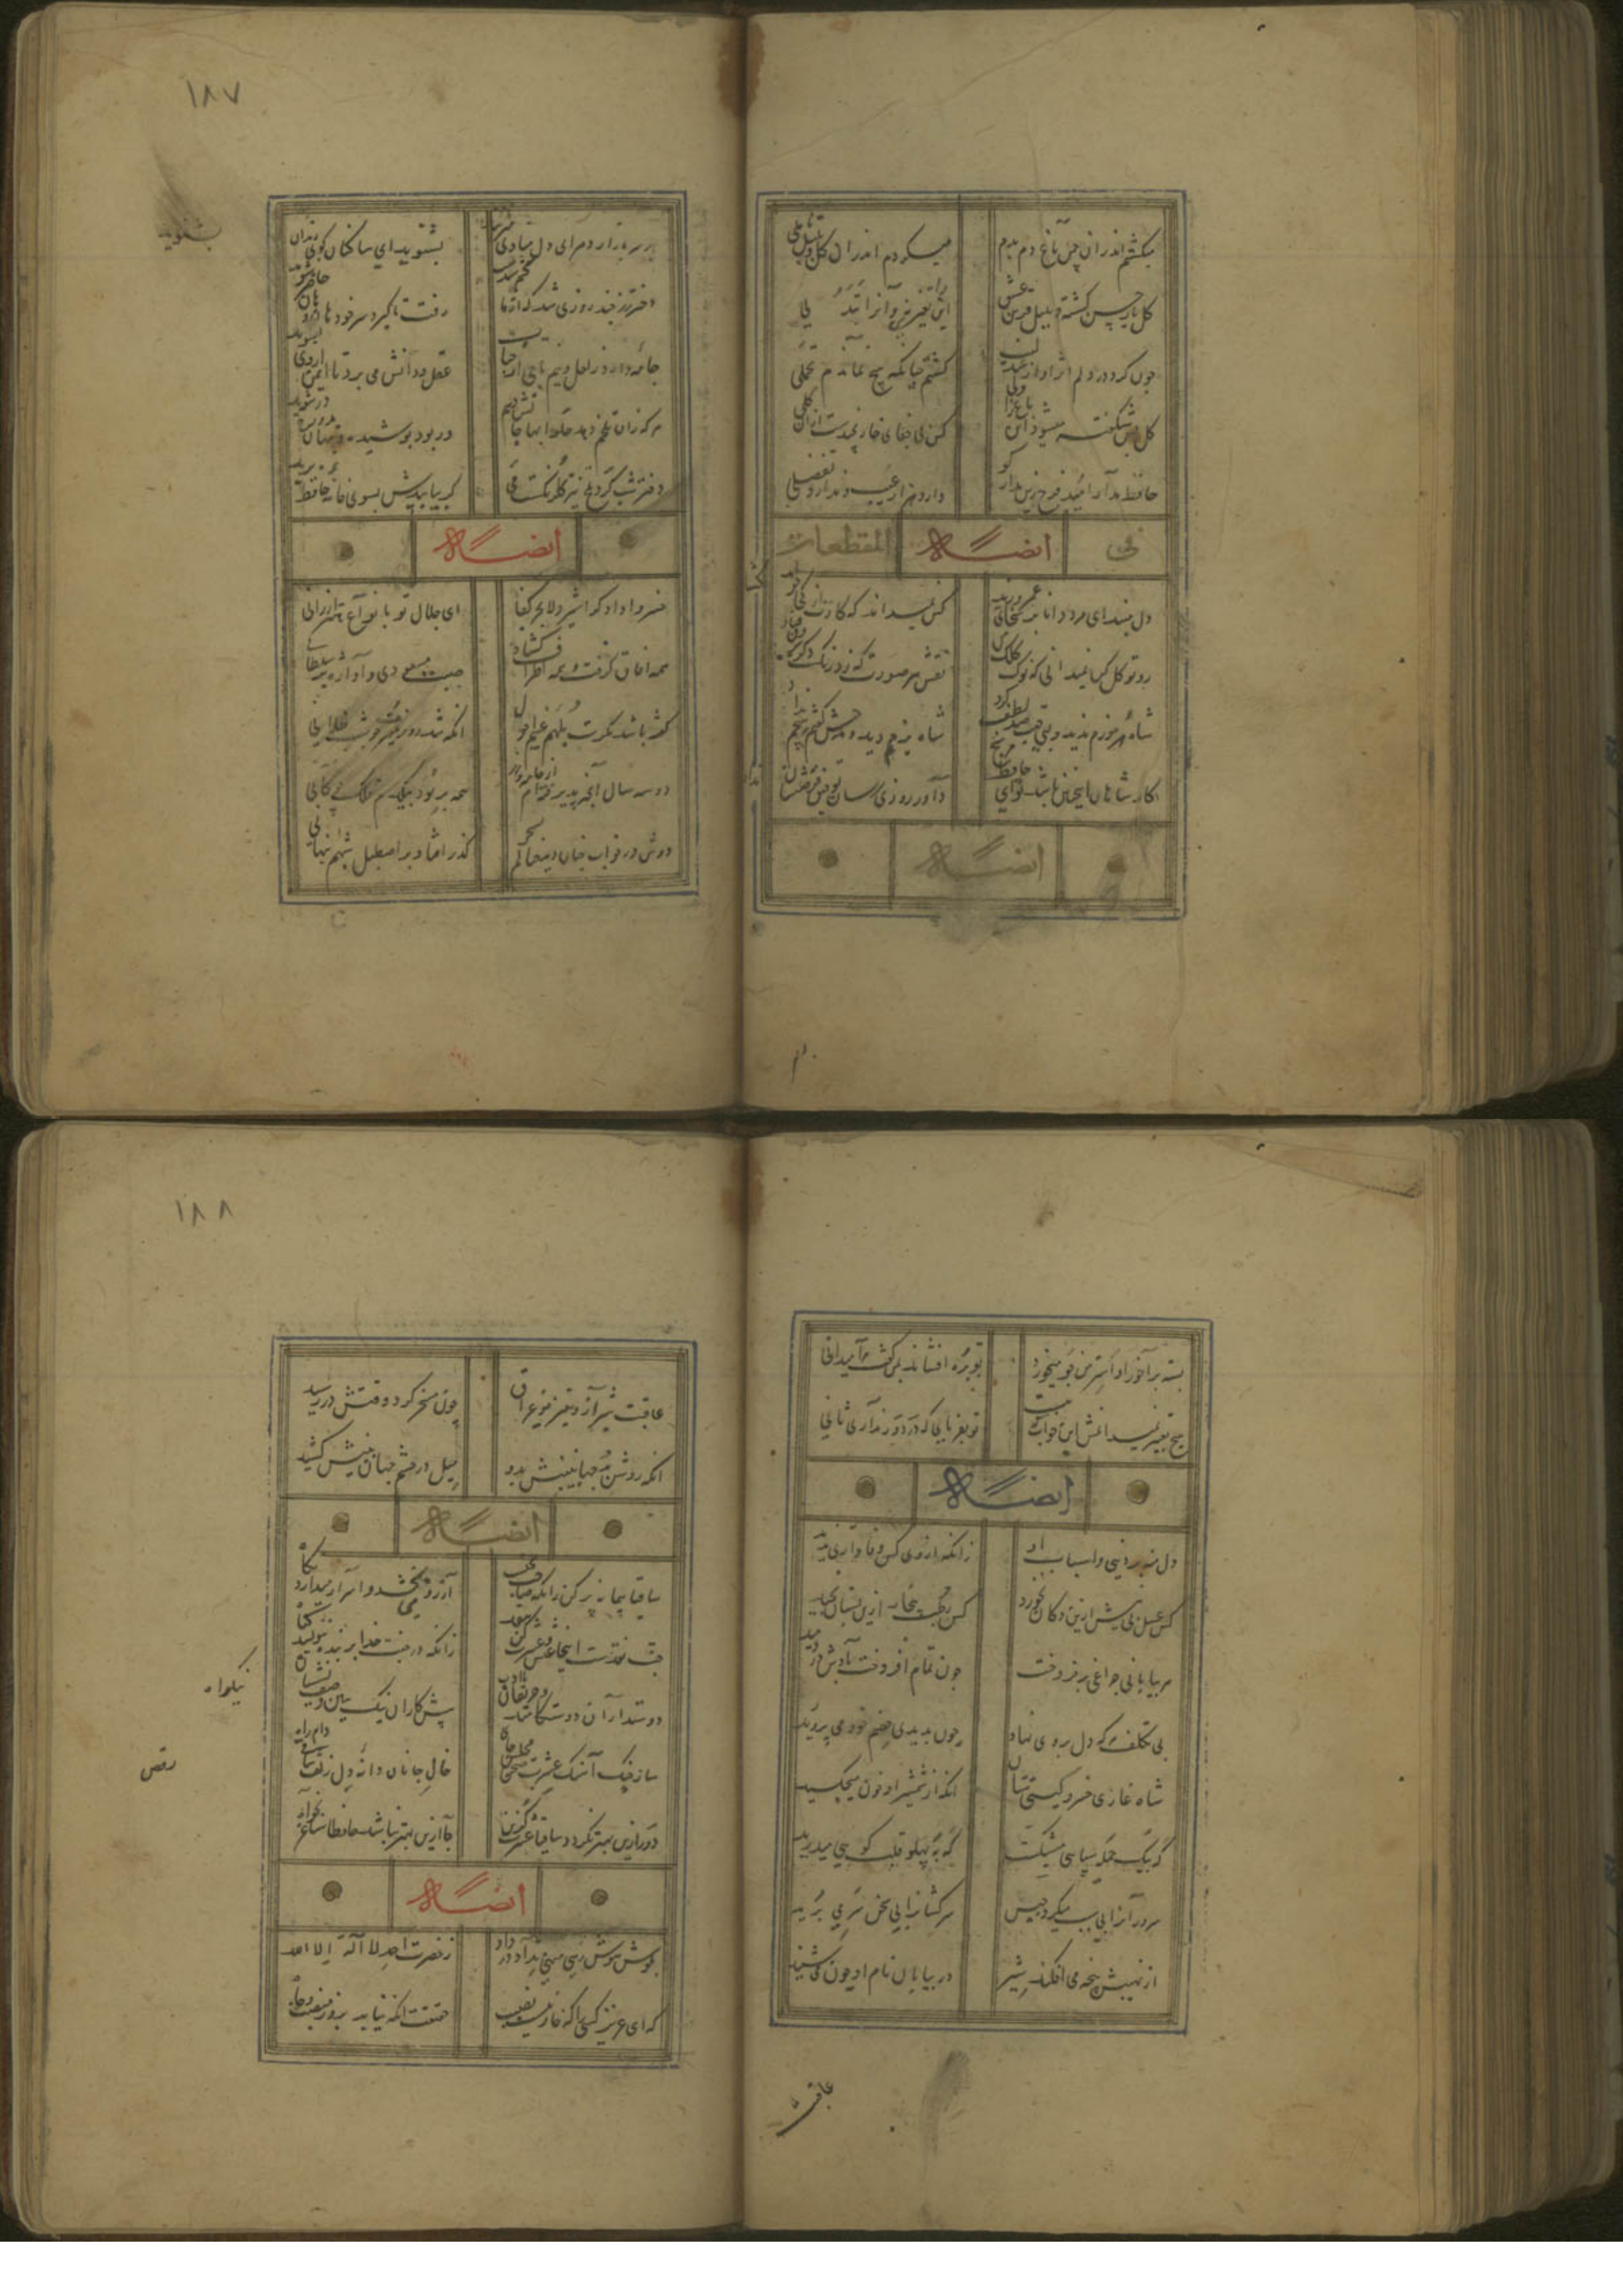 میکشتم اندر ان چمن باغ دم بدم
میکردم اندر ان گل و بلبل تاملی
گل یار حسن کشته و بلبل قرین عشق
این را تغیری نه و آنرا تبدلی
چون کرد در دلم اثر آواز عندلیب
کشتم چنانکه هیچ نماندم تحملی
گل بس شکفته میشود این باغ را ولی
کس بی جفای خار نچیدست ازان گلی
حافظ مدار امید فرح زین مدار کو
دارد هزار عیب و ندارد تفضلی
فی ایضا له المقطعات
دل مبند ای مرد دانا بر سخای عمرو و زید
کس نمیداند که کارش از کجا خواهد گشاد
رو توکل کن نمیدانی که نوک کلک من
نقش هر صورت که زد رنگ دگر بیرون فتاد
شاه هرموزم ندید و بی سخن صد لطف کرد
شاه یزدم دید و مدحش گفتم و هیچم نداد
کار شاهان اینچنین باشد تو ای حافظ مرنج
داور روزی رسان توفیق و نصرتشان
ایضا له
۱۸۷
بر سر بازار
بشنوید ای ساکنان کوی رندان بشنوید
بشنوید
دختر رز چند روزی شد که از ما گم شدست
رفت تا گیرد سر خود هان و هان حاضر شوید
جامه دارد ز لعل و نیم تاجی از حباب
عقل و دانش می برد تا ایمن از وی نغنوید
هر که زان تلخم دهد حلوا بها جانش دهیم
ور بود پوشیده و پنهان بدوزخ در شوید
دختر شب گرد تلخ تیز گلرنگست مست
گر بیابیدش بسوی خانه حافظ برید
ایضا له
خسروا دادگرا شیردلا بحر کفا
ای جلال تو بانواع هنر ارزانی
همه افاق گرفت و همه اطراف گشاد
صیت مسعودی و آوازه شه سلطانی
گفته باشد مگرت ملهم غیب احوال
انکه شد روز منیرش چو شب ظلمانی
در سه سال آنچه بیندوختم از شاه و وزیر
همه بربود بیکدم فلک چوگانی
دوش در خواب چنان دید خیالم که سحر
گذر افتاد بر اصطبل شهم پنهانی
بسته بر آخور او استر من جو میخورد
توبره افشاند بمن گفت مرا میدانی
هیچ تعبیر نمیدانمش این خواب که چیست
تو بفرمایی که در دور نداری ثانی
ایضا له
دل منه بر دنیی و اسباب او
زانکه از وی کس وفاداری ندید
کس عسل بی نیش ازین دکان نخورد
کس رطب بیخار ازین بستان نچید
هر بیابانی چراغی بر فروخت
چون تمام افروخت بادش دردمید
بی تکلف هر که دل بر وی نهاد
چون بدیدی خصم خود می پرورید
شاه غازی خسرو گیتی ستان
انکه از شمشیر او خون میچکید
گه بیک حمله سپاهی میشکست
گه به پهلو قلب گوهی میدرید
سرور آنرا بی سبب میکرد حبس
سرکشانرا بی سخن سر می برید
از نهیبش پنجه می افکند شیر
در بیابان نام او چون می شنید
عاقبت
۱۸۸
عاقبت شیراز و تبریز و عراق
چون مسخر کرد وقتش در رسید
انکه روشن بد جهان بینش بدو
میل در چشم جهان بینش کشید
ایضا له
ساقیا پیمانه پر کن زانکه صاحب مجلست
آرزو میبخشد و اسرار میدارد نگاه
جنت نقدست اینجا عیش و عشرت کن
زانکه در جنت خدا بر بنده ننویسد گناه
دوستداران دوستکامند و حریفان با ادب
پیش کاران نیک نام و صف نشینان
نیکخواه
ساز چنگ آهنگ عشرت صحن مجلس جای
خال جانان دانه دل زلف ساقی دام راه
رقص
دور ازین بهتر نگردد ساقیا عشرت گزین
جا ازین بهتر نباشد حافظا ساغر بخواه
ایضا له
بگوش هوش رهی منهی ندا در داد
ز حضرت احد لا اله الا الله
که ای عزیز کسی را که خواریست نصیب
حقیقت انکه نیابد بزور منصب و جاه